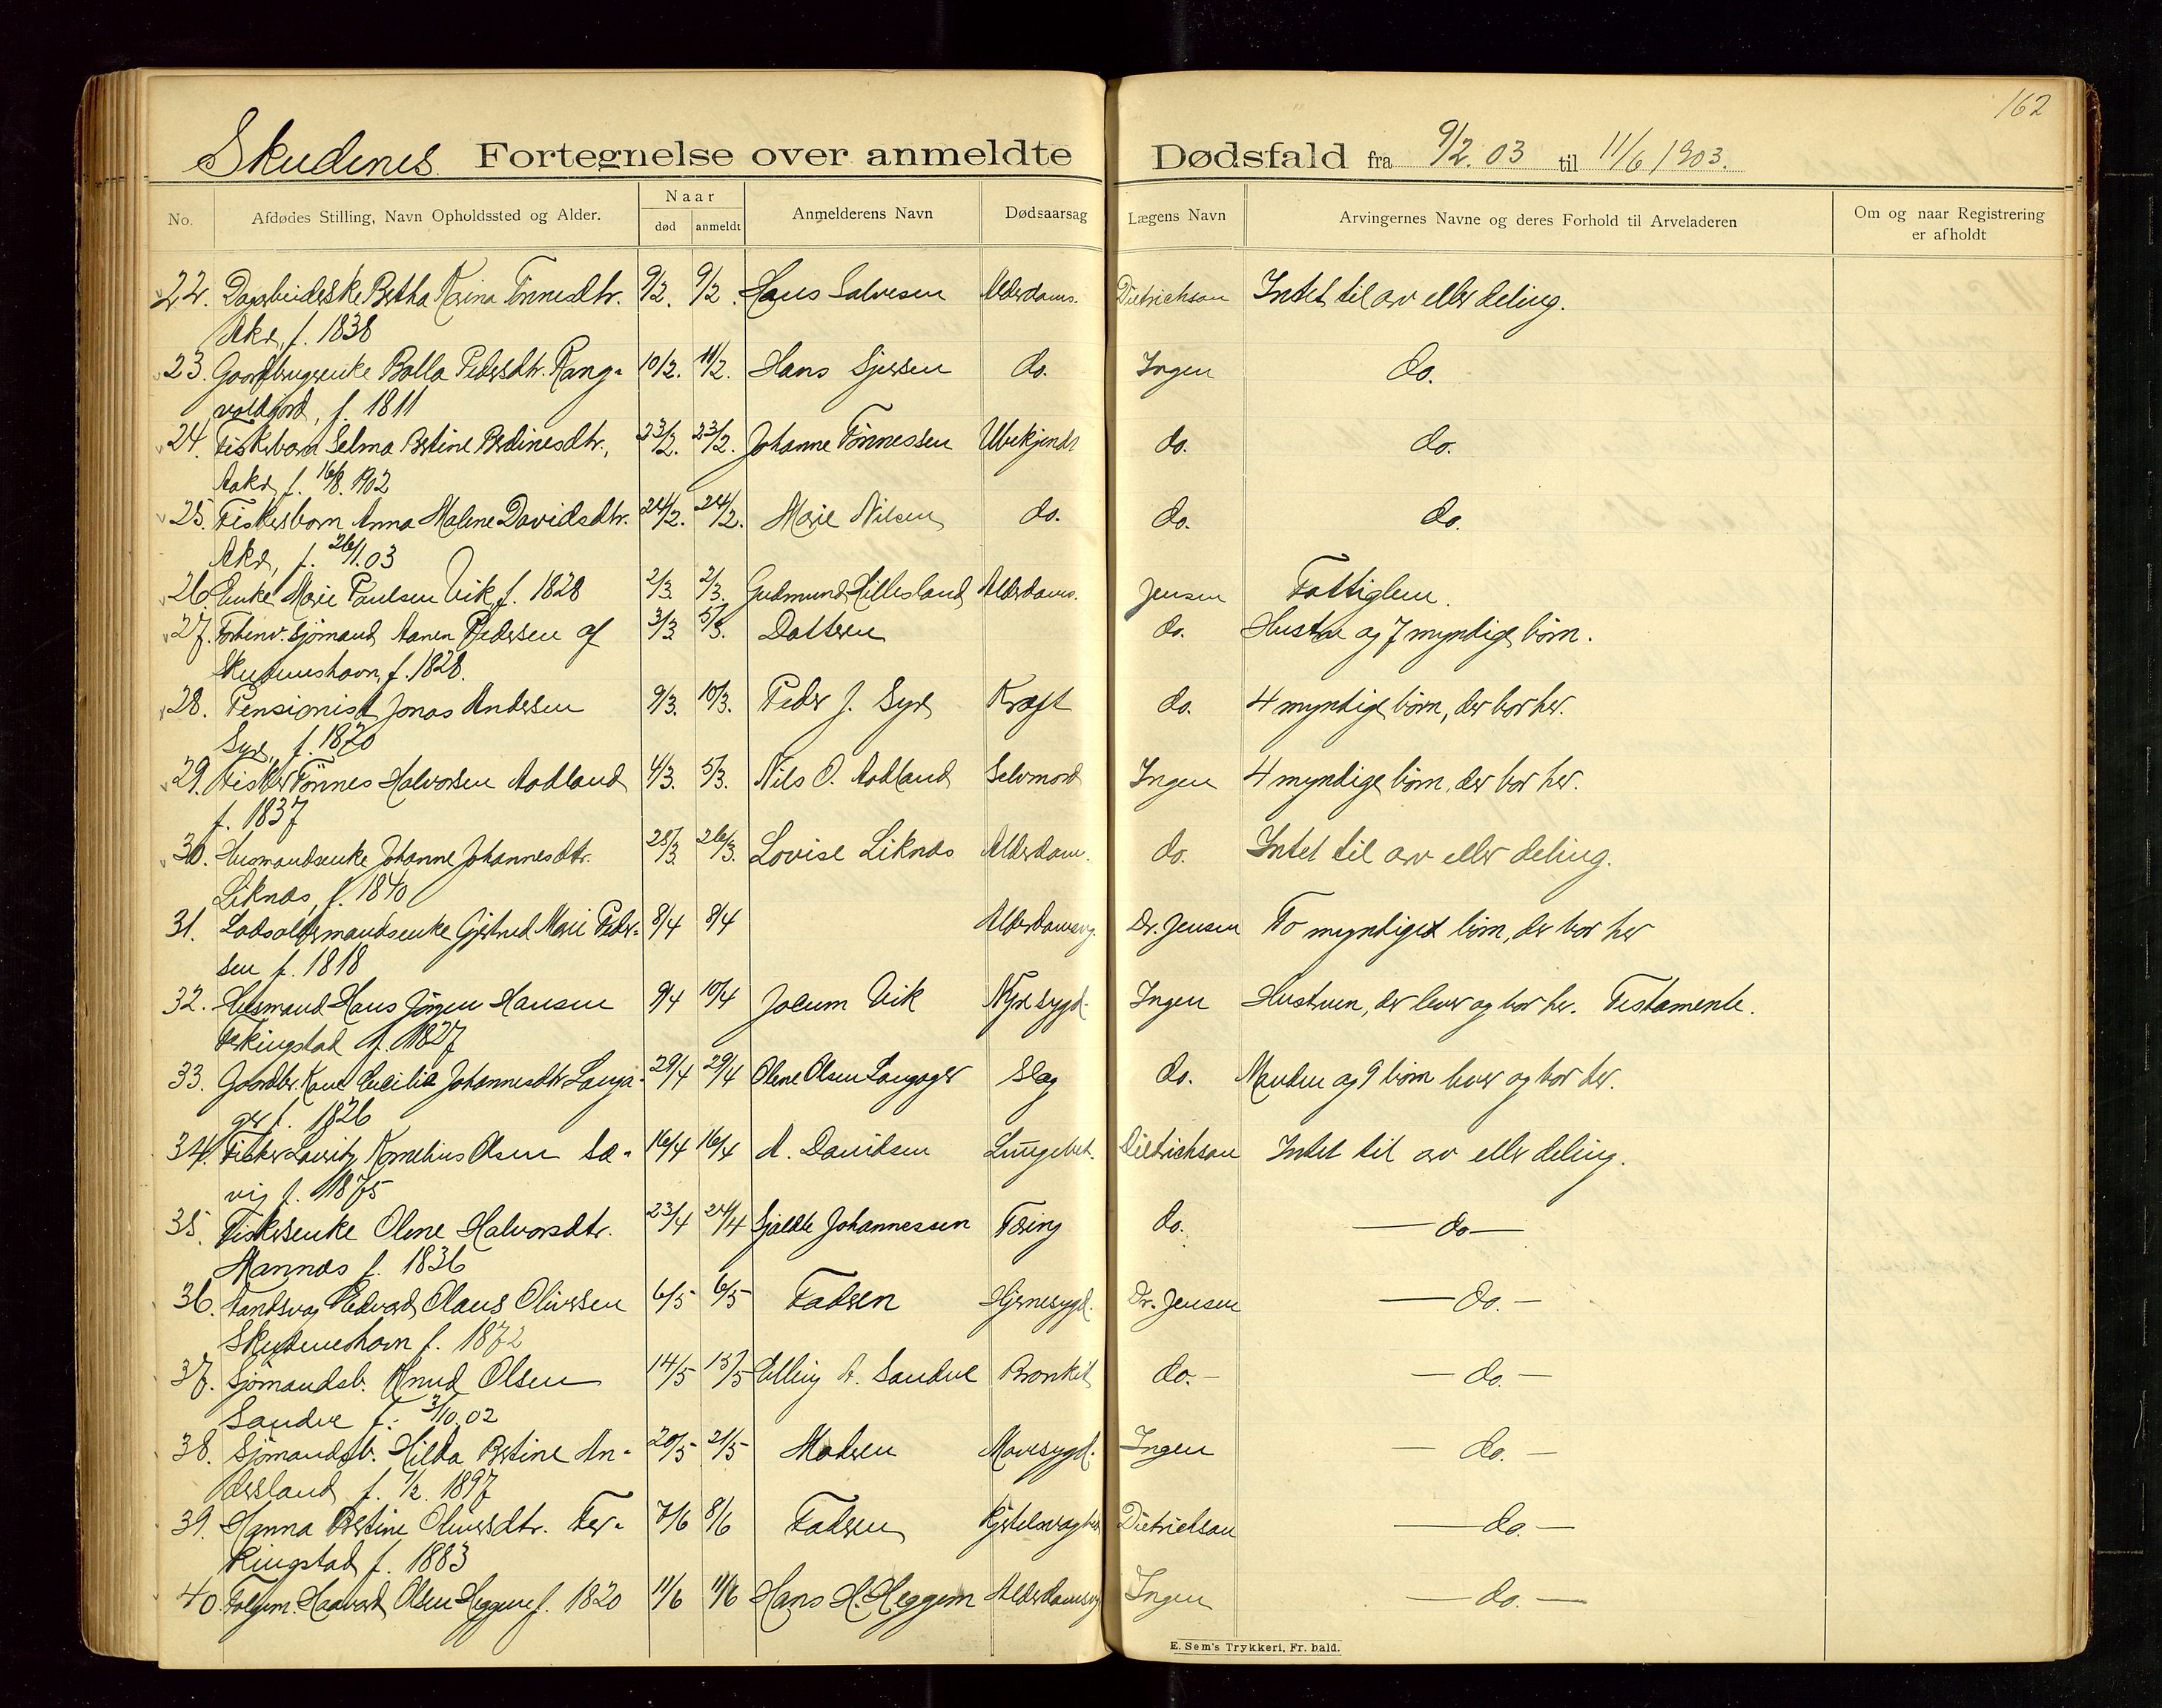 162
Skudenes. Fortegnelse over anmeldte Dødsfald fra 9/2. 03 til 11/6 1903.
No. Afdødes Stilling, Navn Opholdssted og Alder. Naar død anmeldt Anmelderens Navn Dødsaarsag Lægens Navn Arvingernes Navne og deres Forhold til Arveladeren Om og naar Registrering er afholdt
22. Bertha Tönnesdtr. 9/2. 9/2. Hans Salvesen Alderdoms. Dietrichson Intet til arv eller deling.
Akre, f. 1838
23. Gaardbrugerenke Bolla Pedersdtr. Rang- 10/2. 11/2. Hans Sjursen do. Ingen do.
valdjord, f. 1811
24. Fiskerbarn Selma Bertine Berdinesdtr., 23/2. 23/2. Johanne Tönnessen Ubekjendt do. do.
Aakre, f. 16/8. 1902
25. Fiskersbarn Anna Malene Davidsdtr. 24/2. 24/2. Marie Nilsen do. do. do.
Akre, f. 26/1.03
26. Enke Marie Paulsen Vik, f. 1828 2/3 2/3. Gudmund Hillesland Alderdoms. Jensen Fattiglem.
27. Forhenv. Sjömand Aanen Pedersen af 3/3 5/3. Datteren do. Hustru og 7 myndige börn.
Skudeneshavn, f. 1828.
28. Pensionist Jonas Andersen 9/3. 10/3. Peder J. Syre Kræft do. 4 myndige börn, der bor her.
Syre, f. 1820
29. Fisker Tönnes Halvorsen Aadland 4/3. 5/3. Nils O. Aadland Selvmord Ingen 4 myndige börn, der bor her.
f. 1837
30. Husmandsenke Johanne Johannesdtr. 25/3 26/3. Lovise Liknes Alderdom. do. Intet til arv eller deling.
Liknes, f. 1840
31. Lodsoldermandsenke Gjertrud Marie Peder- 8/4 8/4 Alderdomsvg. Dr. Jensen To myndige börn, der bor her
sen f. 1818
32. Husmand Hans Jörgen Hansen 9/4 10/4 Jocum Vik Nyresygd. Ingen Hustruen, der lever og bor her. Testamente.
Ferkingstad f. 1827
33. Gaardbr. Kone Cecilia Johannesdtr Langa- 29/4 29/4 Olene Olsen Langager Slag do. Manden og 9 börn lever og bor her.
ger f. 1826
34. Fisker Lauritz Kornelius Olsen Sæ- 16/4 16/4 A. Davidsen Lungebet. Dietrichson Intet til arv eller deling.
vig f. 1875
35. Fiskerenke Olene Halvorsdtr. 23/4 24/4 Sjalde Johannessen Tæring do. — do —
Mannes f. 1836
36. Aandsvag Edvard Olaus Olivessen 6/5 6/5 Faderen Hjernesygd. Dr. Jensen — do. —
Skudeneshavn f. 1872
37. Sjömandsb. Knud Olsen 14/5 15/5 Elling A. Sandve Bronkit do. — — do. —
Sandve f. 3/10.02
38. Sjömandsb. Hilda Bertine An- 20/5 21/5 Moderen Mavesygd. Ingen — do. —
dersland f. 1/2. 1897
39. Hanna Bertine Oliversdtr. Fer- 7/6 8/6 Faderen Kjertelsvaghed Dietrichson — do. —
kingstad f. 1883
40. Haavard Olsen f. 1820 11/6 11/6 Hans H. Heggem Alderdomsvg Ingen — do. —
E. Sem's Trykkeri, Fr. hald.